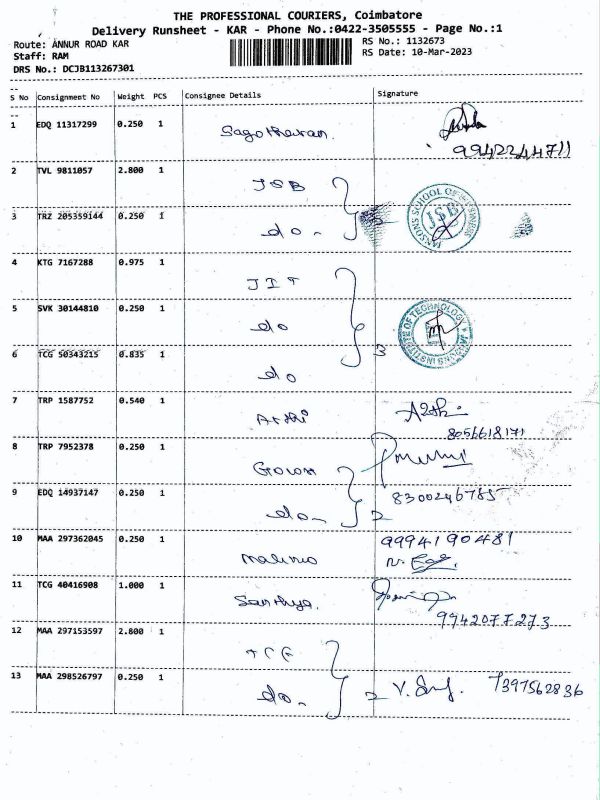 THE PROFESSIONAL COURIERS, Coimbatore
Delivery Runsheet - KAR - Phone No.:0422-3505555 - Page No.:1
Route: ANNUR ROAD KAR
Staff: RAM
DRS No.: DCJB113267301
RS No.: 1132673
RS Date: 10-Mar-2023
S No Consignment No Weight PCS Consignee Details Signature
1 EDQ 11317299 0.250 1
9942244711
2 TVL 9811057 2.800 1 JSB
3 TRZ 205359144 0.250 1 do.
JANSONS SCHOOL OF BUSINESS
JSB
4 KTG 7167288 0.975 1 JIT
5 SVK 30144810 0.250 1 do
INSTITUTE OF TECHNOLOGY
6 TCG 50343215 0.835 1 do 3
7 TRP 1587752 0.540 1 Arthi
8056618171
8 TRP 7952378 0.250 1
9 EDQ 14937147 0.250 1 do. 2 8300246785
10 MAA 297362045 0.250 1 9994190481
11 TCG 40416908 1.000 1 Santhya.
9942077273
12 MAA 297153597 2.800 1
13 MAA 298526797 0.250 1 do. 2 7397562836